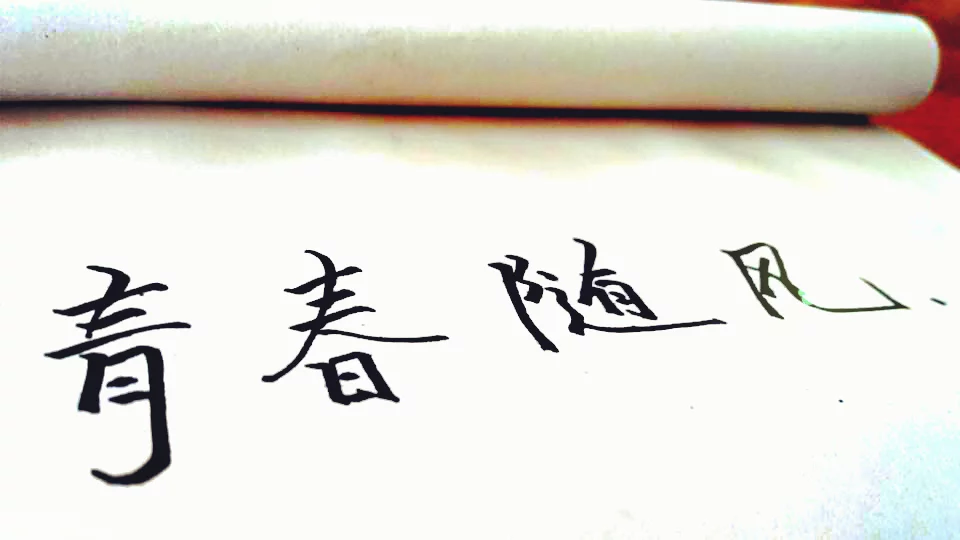 青春随风.